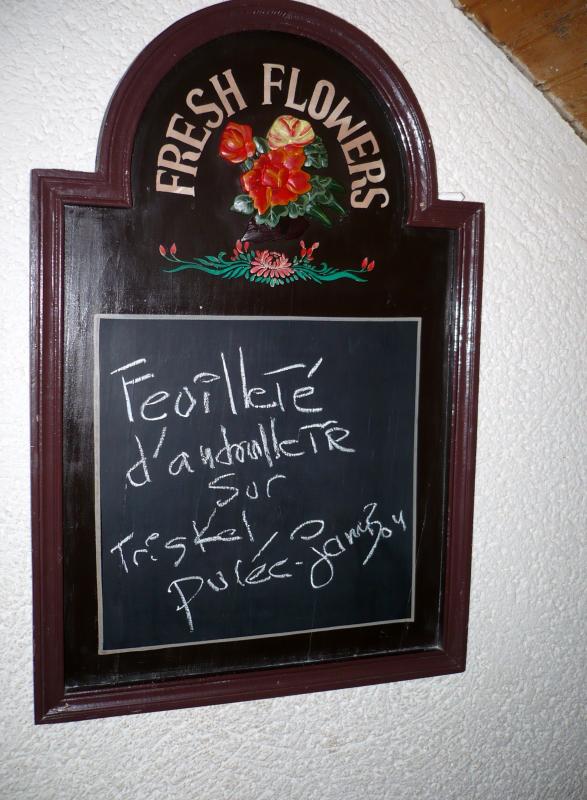 FRESH FLOWERS
Feuilleté
d'andouilleTR
sur
Triskel
purée-jambou